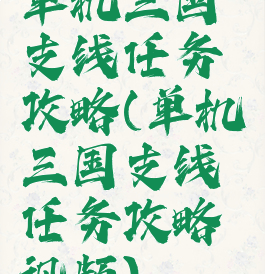 单机三国
支线任务
攻略(单机
三国支线
任务攻略
视频)